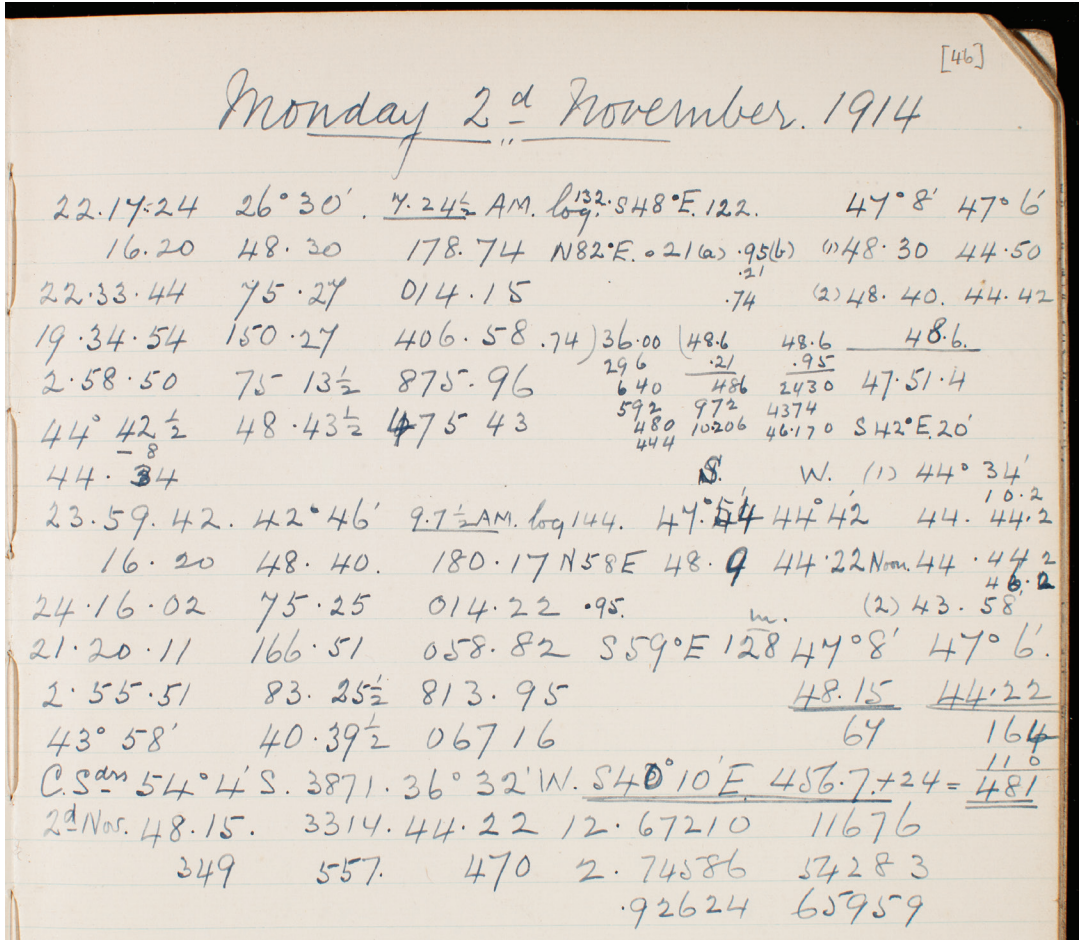 [46]
Monday 2d November. 1914
22.17.24 26° 30'. 7.24½ AM. log 132. S48°E. 122. 47° 8' 47° 6'
16.20 48.30 178.74 N82°E. .21(a) .95(b) (1) 48.30 44.50
.21
22.33.44 75.27 014.15 .74 (2) 48.40. 44.42
19.34.54 150.27 406.58 .74)36.00(48.6 48.6 48.6.
296 .21 .95
2.58.50 75 13½ 875.96 640 486 2430 47.51.4
592 972 4374
44° 42½ 48.43½ 475 43 480 10206 46.170 S42°E.20'
- 8 444
44.34 S. W. (1) 44° 34'
10.2
23.59.42. 42° 46' 9.7½ AM. log 144. 47°.54' 44° 42' 44. 44.2
16.20 48.40. 180.17 N58E 48.9 44.22 Noon. 44.44 2
46.2
24.16.02 75.25 014.22 .95. (2) 43.58'
m.
21.20.11 166.51 058.82 S59°E 128 47° 8' 47° 6'.
2.55.51 83.25½ 813.95 48.15 44.22
43° 58' 40.39½ 067 16 67 164
110
C. Sdrs 54° 4' S. 3871. 36° 32' W. S40° 10' E. 456.7. + 24 = 481
2d Nov. 48.15. 3314. 44.22 12.67210 11676
349 557. 470 2.74586 54283
.92624 65959